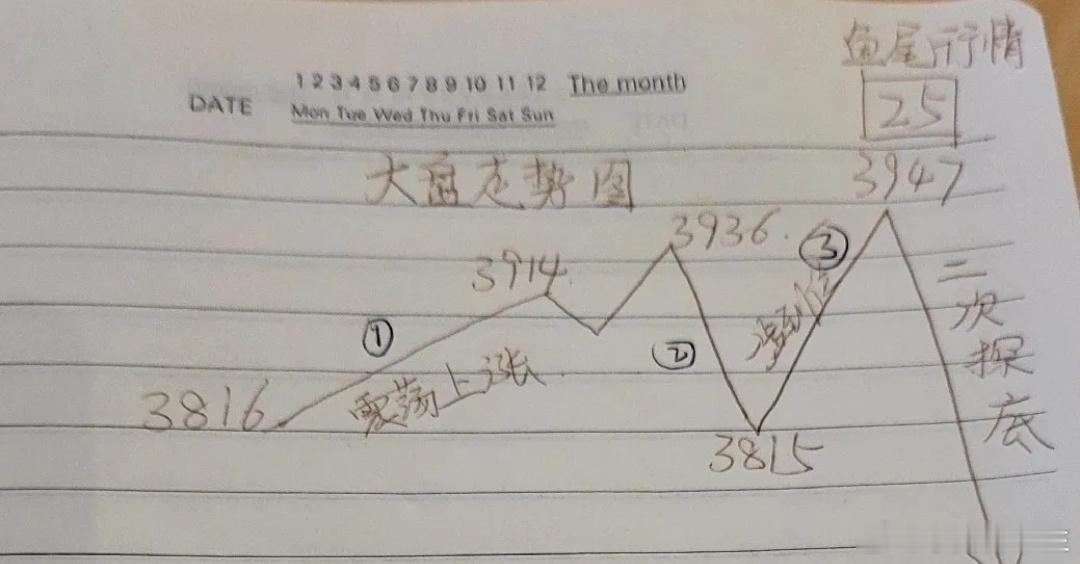 鱼尾行情
1 2 3 4 5 6 7 8 9 10 11 12 The month
DATE
Mon Tue Wed Thu Fri Sat Sun
25
大盘走势图
3947
3936.
③
3914
二次探底
①
②
涨到位
震荡上涨
3816
3815